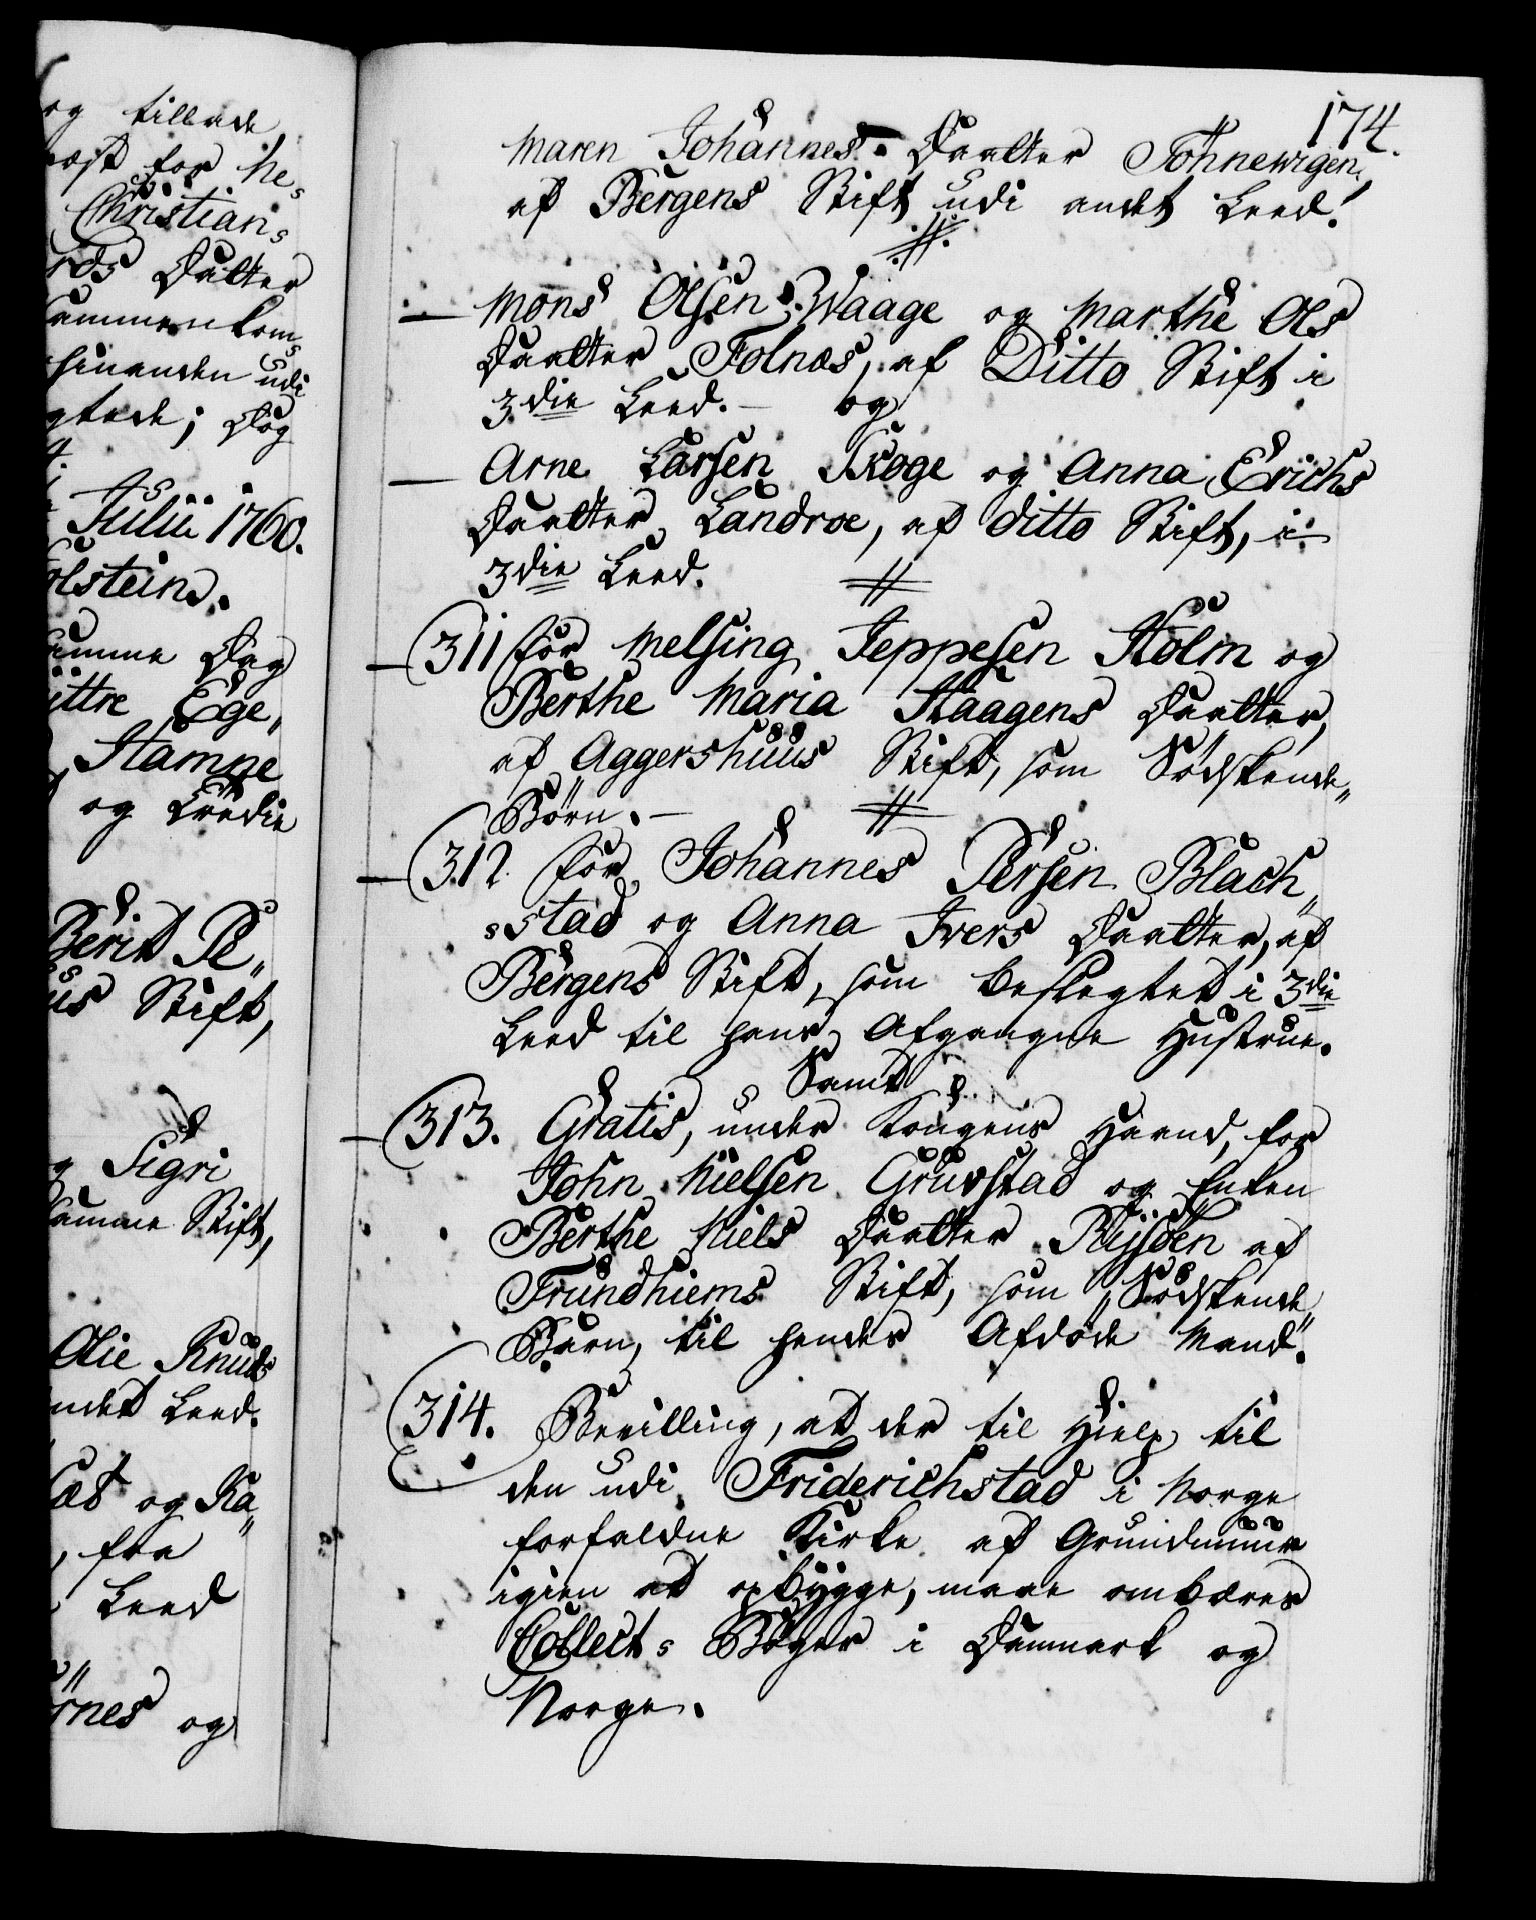 og tillade
næst for he-
Christian-
rds Datter
sammenkom-
hinanden udi
gtede; Dog
Julii 1760.
olstein.
samme Dag
ittre Ege„
Hampe
og tredie
Berit Pe„
us Stift,
Sigri
samme Stift,
Olie Knuds
andet Leed.
og Ka„
, fra
Leed
rnes og
174.
Maren Johannes- Daatter Tohnewigen,
af Bergens Stift udi andet Leed!
Mons Olsen Waage og Marthe Ols
Daatter Folnæs, af Ditto Stift i
3die Leed. — og
Arne Larsen Skoge og Anna Erichs
Daatter Landroe, af ditto Stift, i
3die Leed.
311 for Melsing Jeppesen Holm og
Berthe Maria Haagens Daatter,
af Aggershuus Stift, som Södskende„
Börn. —
312. for Johannes Persen Blach„
-stad og Anna Ivers Daatter, af
Bergens Stift, som beslegtet i 3die
Leed til hans Afgangne Hustrue.
Samt
313. Gratis, under Kongens Haand, for
John Nielsen Gruvstad og Enken
Berthe Niels Daatter Rijsöen af
Trundhiems Stift, som Södskende„
Barn, til hendes Afdöde Mand.
314. Bevilling, at der til Hielp til
den udi Friderichstad i Norge
forfaldne Kirke af Grundmuur
igien at opbygge, maae ombæres
Collect- Böger i Danmark og
Norge.